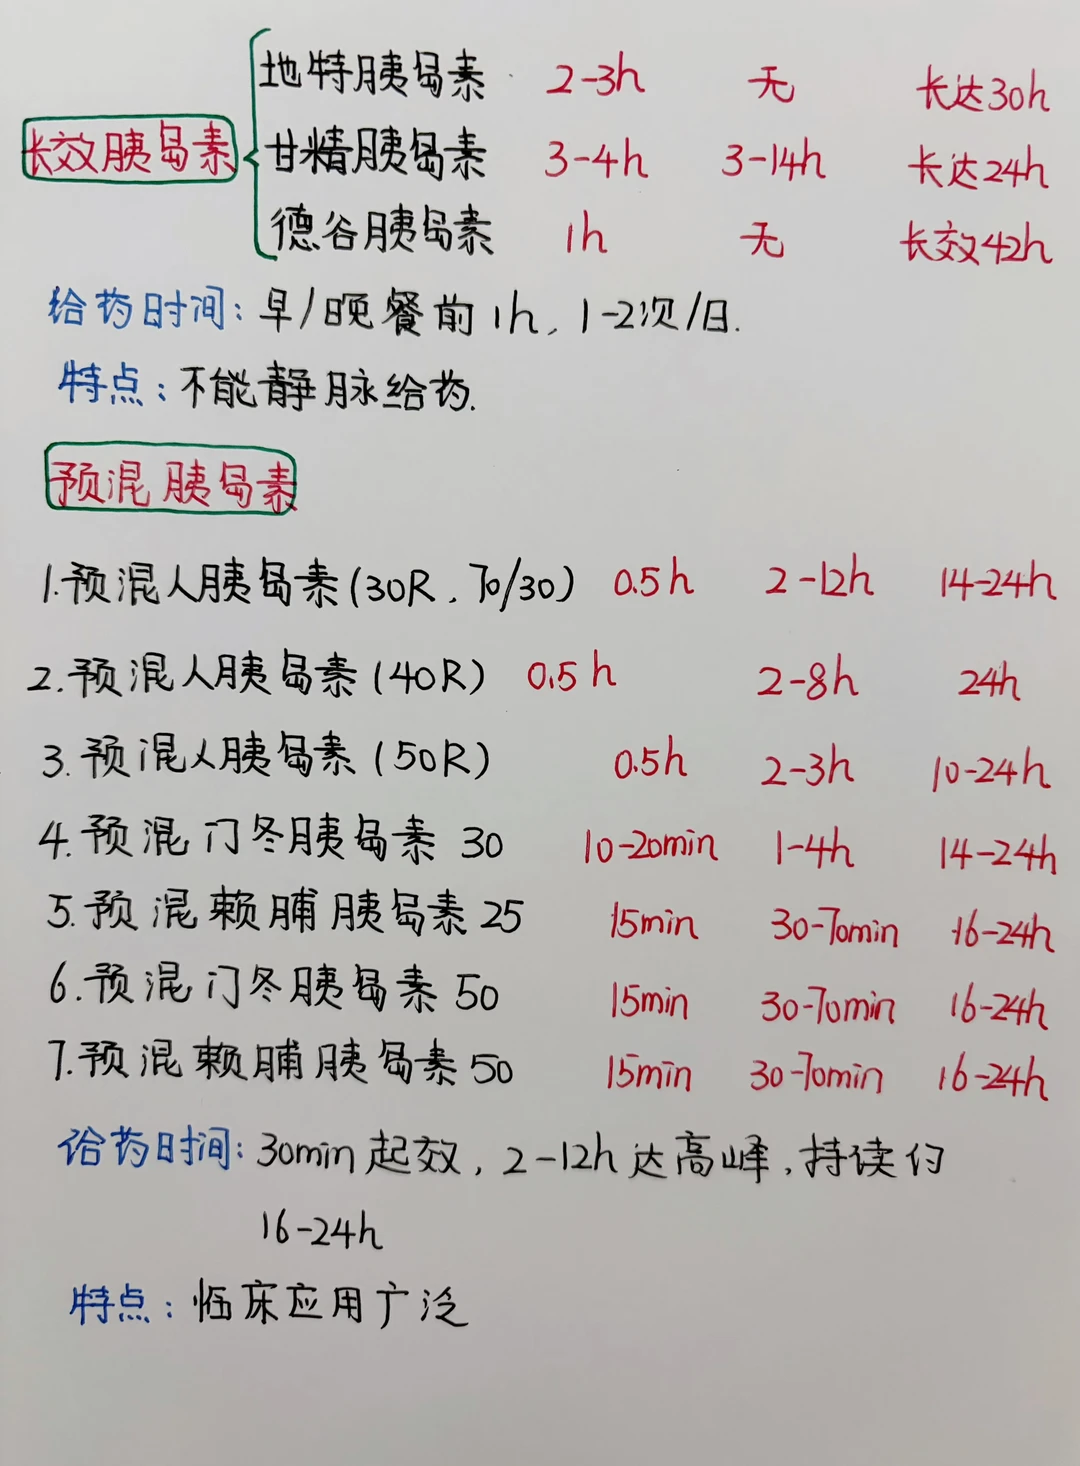 地特胰岛素 2-3h 无 长达30h
长效胰岛素 甘精胰岛素 3-4h 3-14h 长达24h
德谷胰岛素 1h 无 长效42h
给药时间:早/晚餐前1h,1-2次/日.
特点:不能静脉给药.
预混胰岛素
1.预混人胰岛素(30R,70/30) 0.5h 2-12h 14-24h
2.预混人胰岛素(40R) 0.5h 2-8h 24h
3.预混人胰岛素(50R) 0.5h 2-3h 10-24h
4.预混门冬胰岛素 30 10-20min 1-4h 14-24h
5.预混赖脯胰岛素25 15min 30-70min 16-24h
6.预混门冬胰岛素50 15min 30-70min 16-24h
7.预混赖脯胰岛素50 15min 30-70min 16-24h
给药时间:30min起效,2-12h达高峰,持续约
16-24h
特点:临床应用广泛